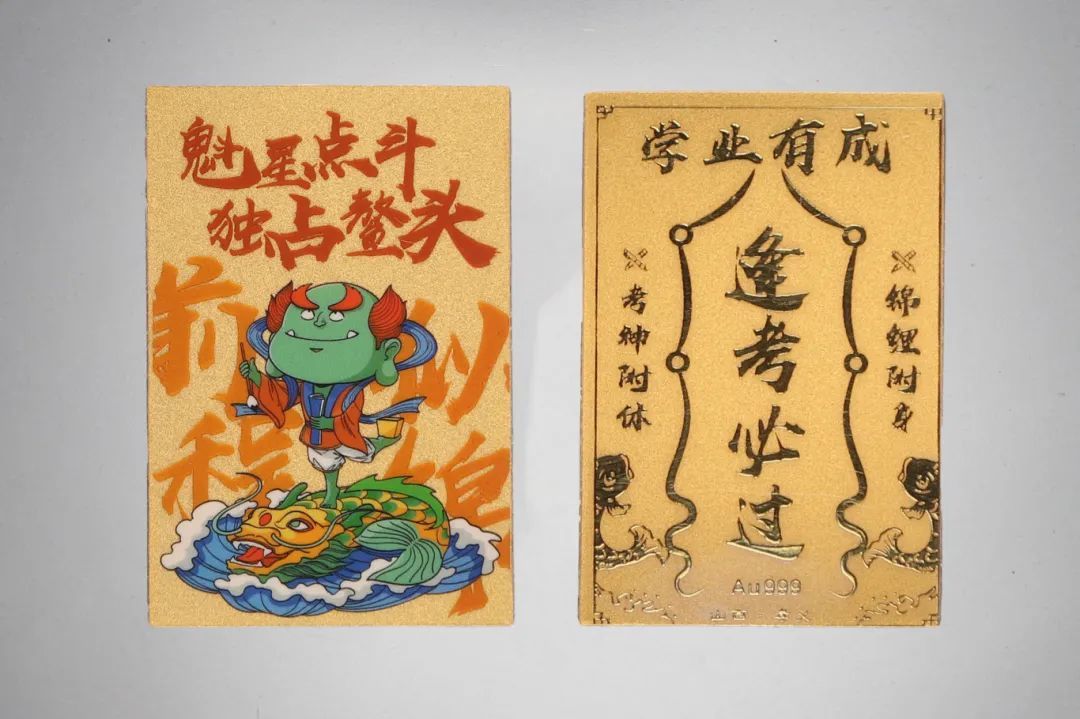 魁星点斗
独占鳌头
前程
似锦
学业有成
逢考必过
考神附体
锦鲤附身
Au999
山西